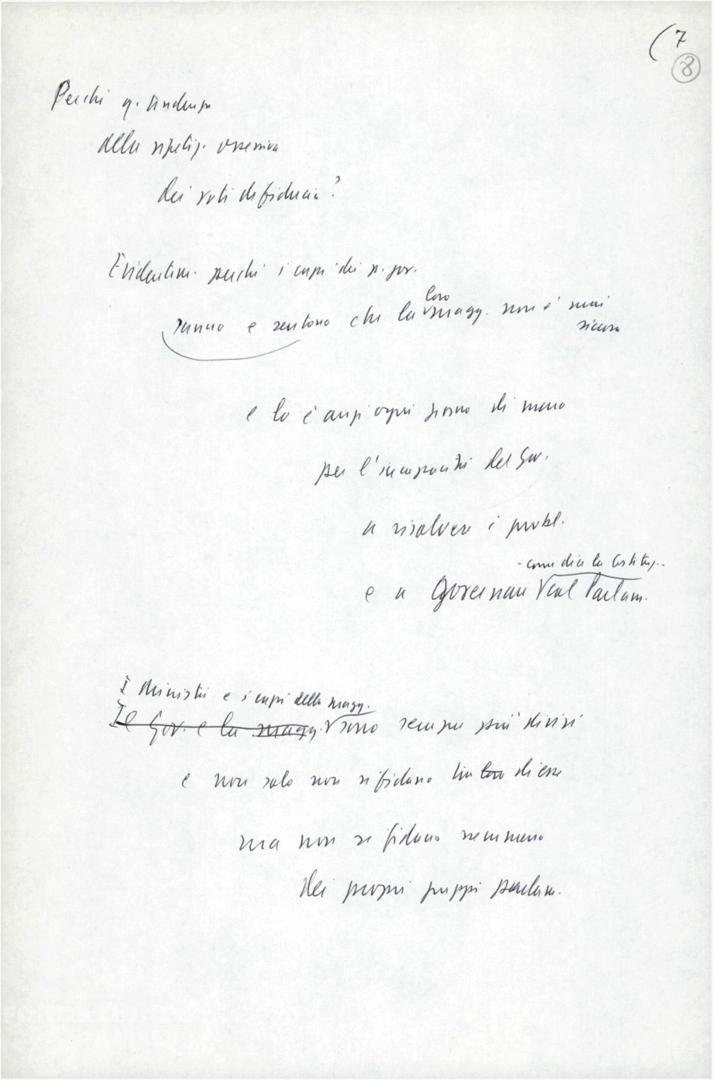 (7
8
Perché q. tendenza
della ripetiz. ossessiva
dei voti di fiducia?
Evidentem. perché i capi dei p. gov.
sanno e sentono che la loro magg. non è mai
sicura
e lo è anzi ogni giorno di meno
per l'incapacità del Gov.
a risolvere i probl.
- come dice la Costituz. -
e a governare col Parlam.
I Ministri e i capi della magg.
Il Gov. e la magg. sono sempre più divisi
e non solo non si fidano tra loro di esse
ma non si fidano nemmeno
dei propri gruppi parlam.